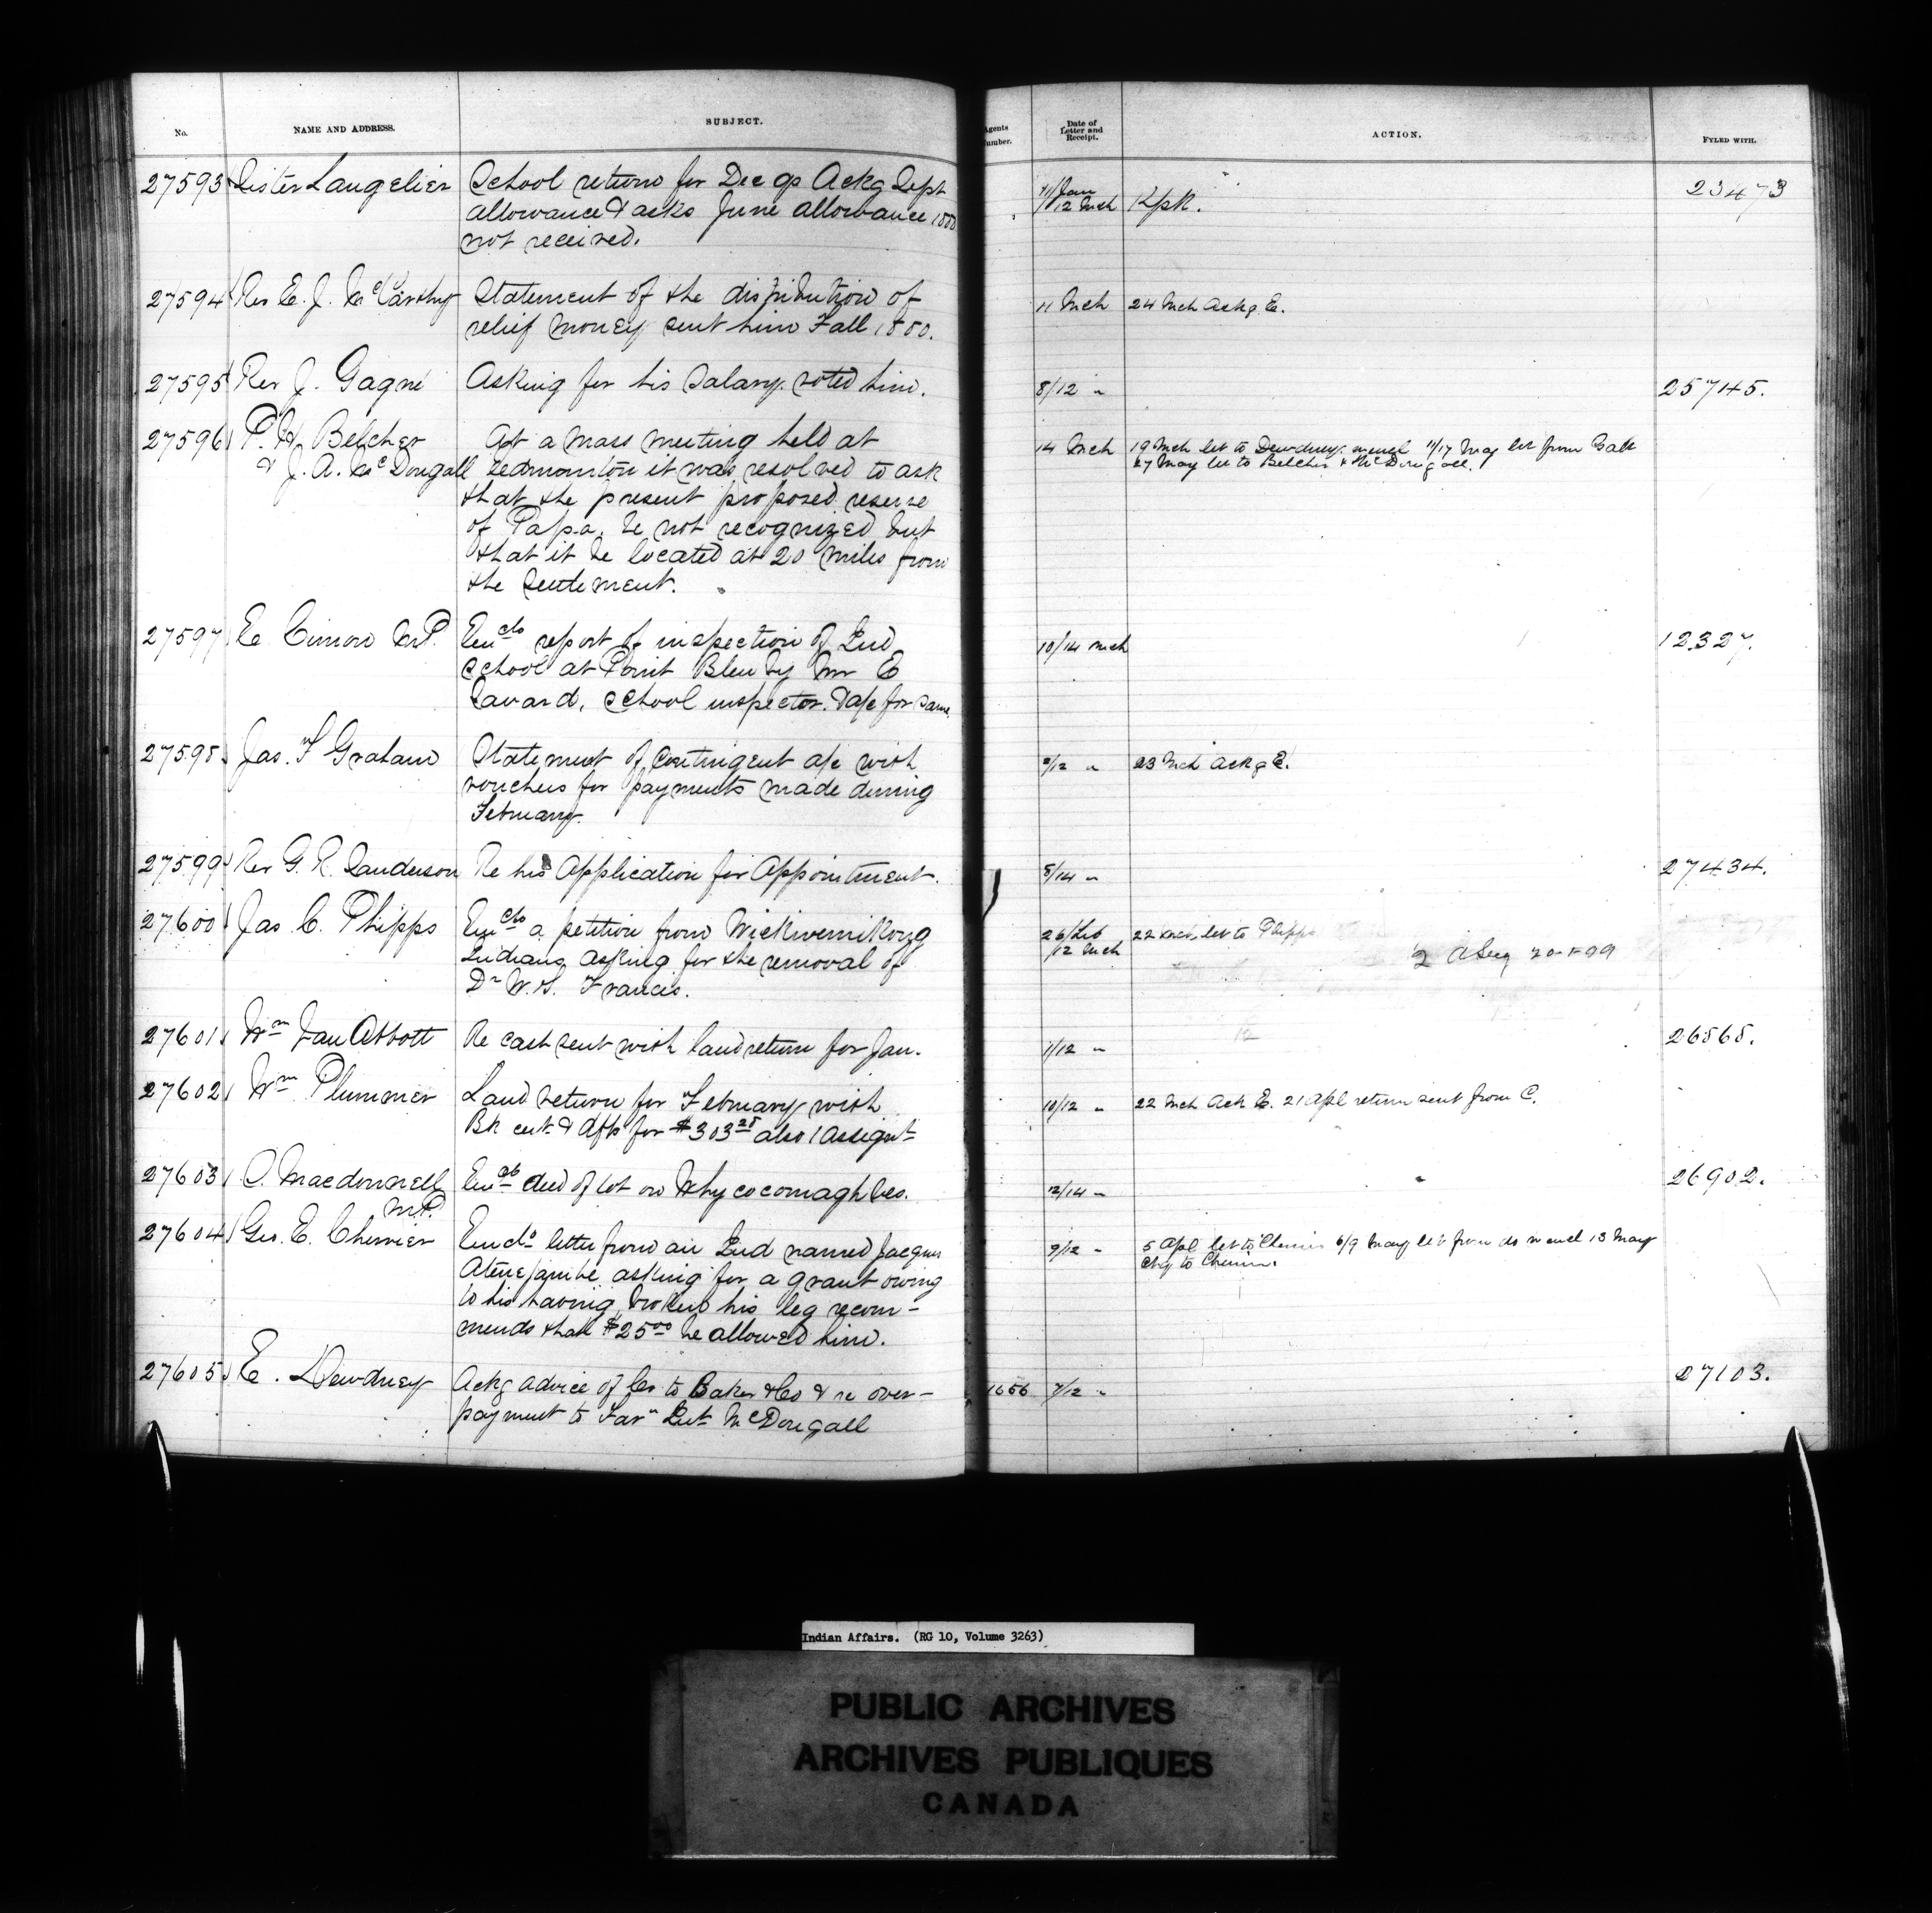 No. NAME AND ADDRESS. SUBJECT. Agents Number. Date of Letter and Receipt. ACTION. FYLED WITH.
27593 Sister Langelier School return for Dec qr Ackg Sept 11/Jan Kpk. 23473
allowance & asks June allowance 1880 12 Mch
not received.
27594 Rev E. J. McCarthy Statement of the distribution of 11 Mch 24 Mch Ackg E.
relief money sent him Fall 1880.
27595 Rev J. Gagné Asking for his salary voted him. 8/12 " 25745.
27596 P. W. Belcher At a mass meeting held at 14 Mch 19 Mch let to Dewdney w encl 11/17 May let from Galt
& J. A. McDougall Edmonton it was resolved to ask 27 May let to Belcher & McDougall.
that the present proposed reserve
of Papa. be not recognized but
that it be located at 20 miles from
the settlement.
27597 E Cimon M.P. Encls report of inspection of Ind 10/14 Mch 12327.
school at Point Bleu by Mr E
Savard, school inspector. & a/c for same.
27598 Jas. F Graham Statement of Contingent a/c with 2/12 " 23 Mch Ackg E.
vouchers for payments made during
February.
27599 Rev G. R. Sanderson Re his Application for Appointment. 8/14 " 27434.
27600 Jas C. Phipps Encls a petition from Wickwemikong 26/Feb 22 Mch let to Phipps
Indians asking for the removal of 12 Mch
Dr W. S. Francis.
27601 Wm Van Abbott Re cash sent with land return for Jan. 11/12 " 26868.
27602 Wm Plummer Land return for February with 10/12 " 22 Mch Ack E. 21 Apl return sent from C.
Bk cert & dft for $303 28 also 1 Assignt
27603 S. Macdonnell Encls deed of lot on Whycocomagh Res. 12/14 " 26902.
M.P.
27604 Geo. E. Cherrier Encls letter from an Ind named Jacques 9/12 " 5 Apl let to Cherrier 6/9 May let from do w encl 13 May
asking for a grant owing Chq to Cherrier.
to his having broken his leg recom-
mends that $25 00 be allowed him.
27605 E. Dewdney Ackg advice of Cr to Baker & Co & re over- 1656 7/12 " 27103.
payment to Farm Inst McDougall
Indian Affairs. (RG 10, Volume 3263)
PUBLIC ARCHIVES
ARCHIVES PUBLIQUES
CANADA